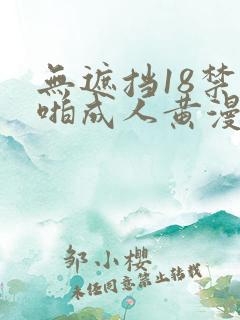 無遮挡18禁
啪成人黄漫
邹小樱
未经同意禁止转载